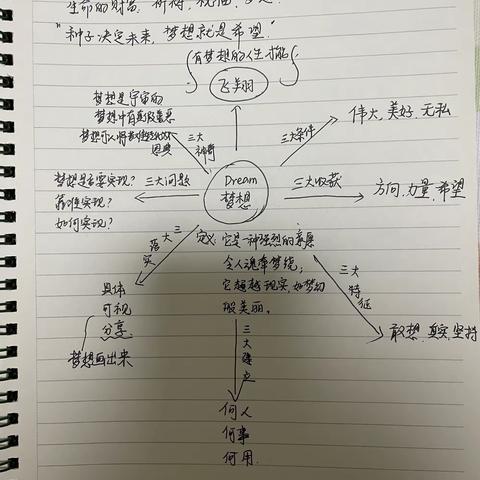 生命的财富, 祈祷, 祝福
"种子决定未来, 梦想就是希望."
有梦想的人生才能
飞翔
梦想是宇宙的
梦想中有
梦想可以将
恩典
三大
神奇
三大条件
伟大, 美好, 无私
梦想是否要实现?
靠谁实现?
如何实现?
三大问题
Dream
梦想
三大收获
方向, 力量, 希望
三大落实
具体
可视
分享
梦想画出来
定义: 它是一种强烈的意愿
令人魂牵梦绕;
它超越现实, 如梦幻
般美丽。
三大特征
敢想, 真实, 坚持
三大建立
何人
何事
何用